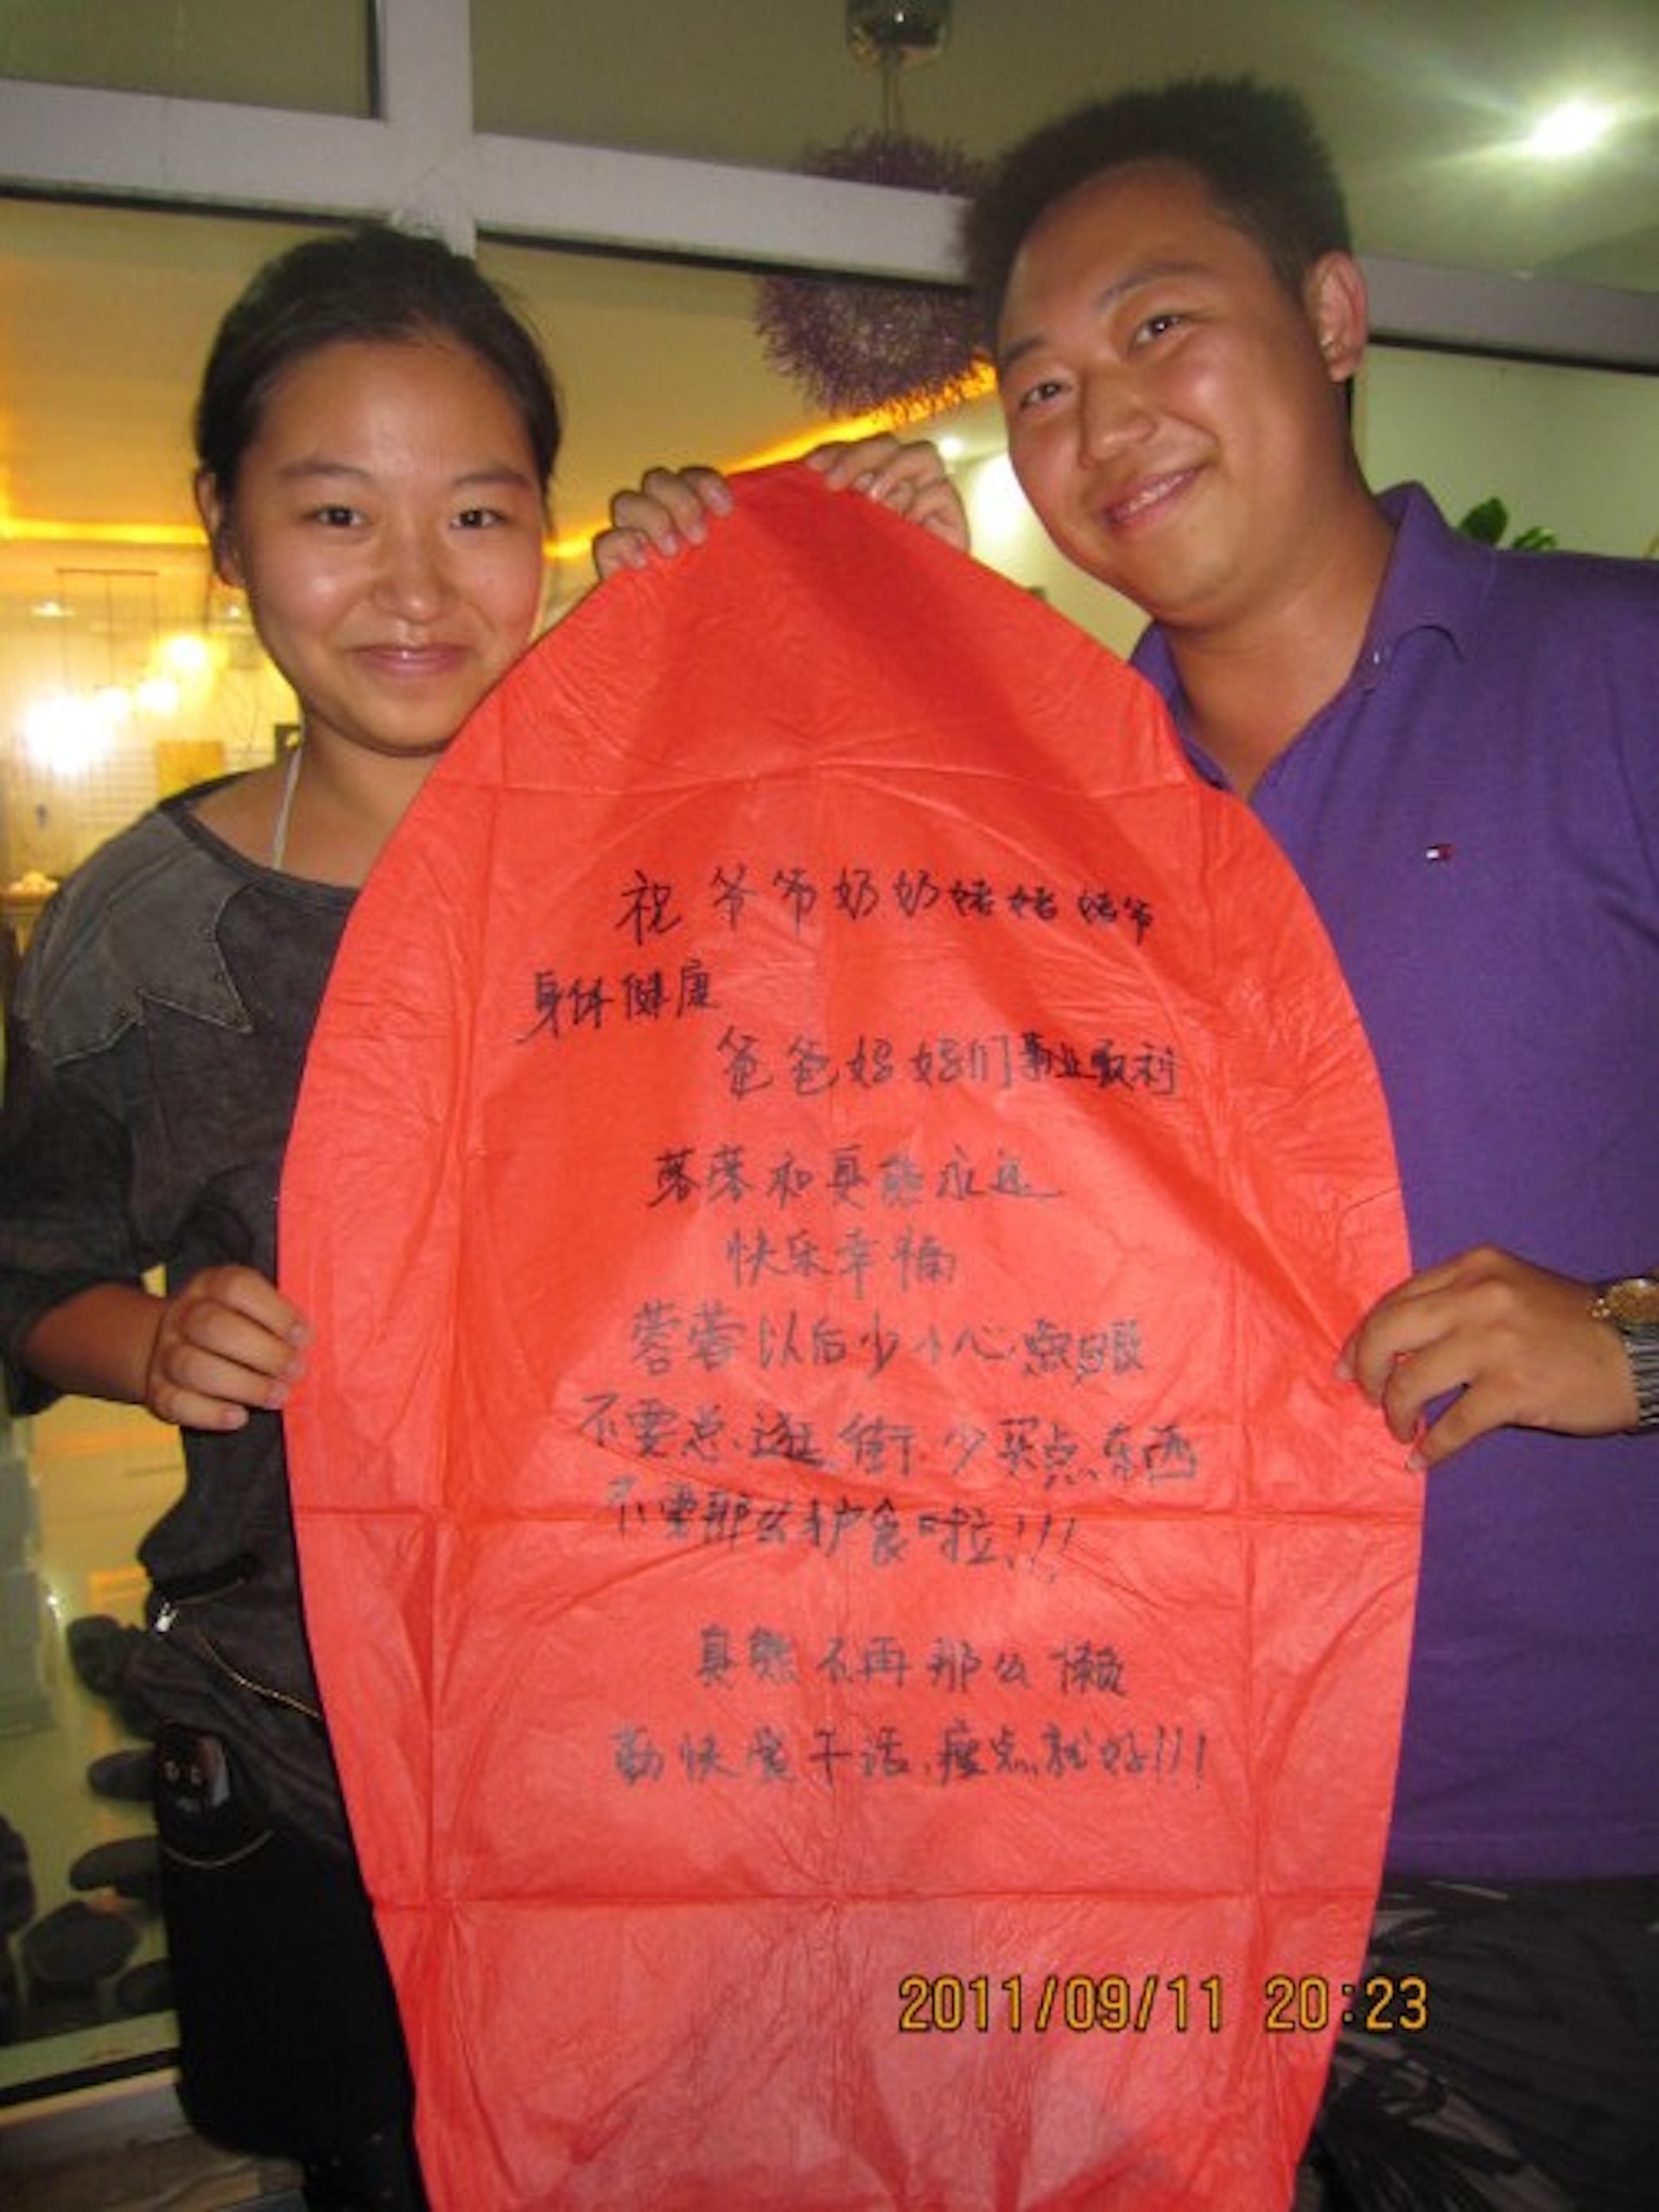 祝爷爷奶奶姥姥姥爷
身体健康
爸爸妈妈们事业顺利
蓉蓉和真熊永远
快乐幸福
蓉蓉以后少小心点眼
不要总逛街.少买点东西
不要那么护食啦!!!
真熊不再那么懒
勤快爱干活.瘦点就好!!!
2011/09/11 20:23